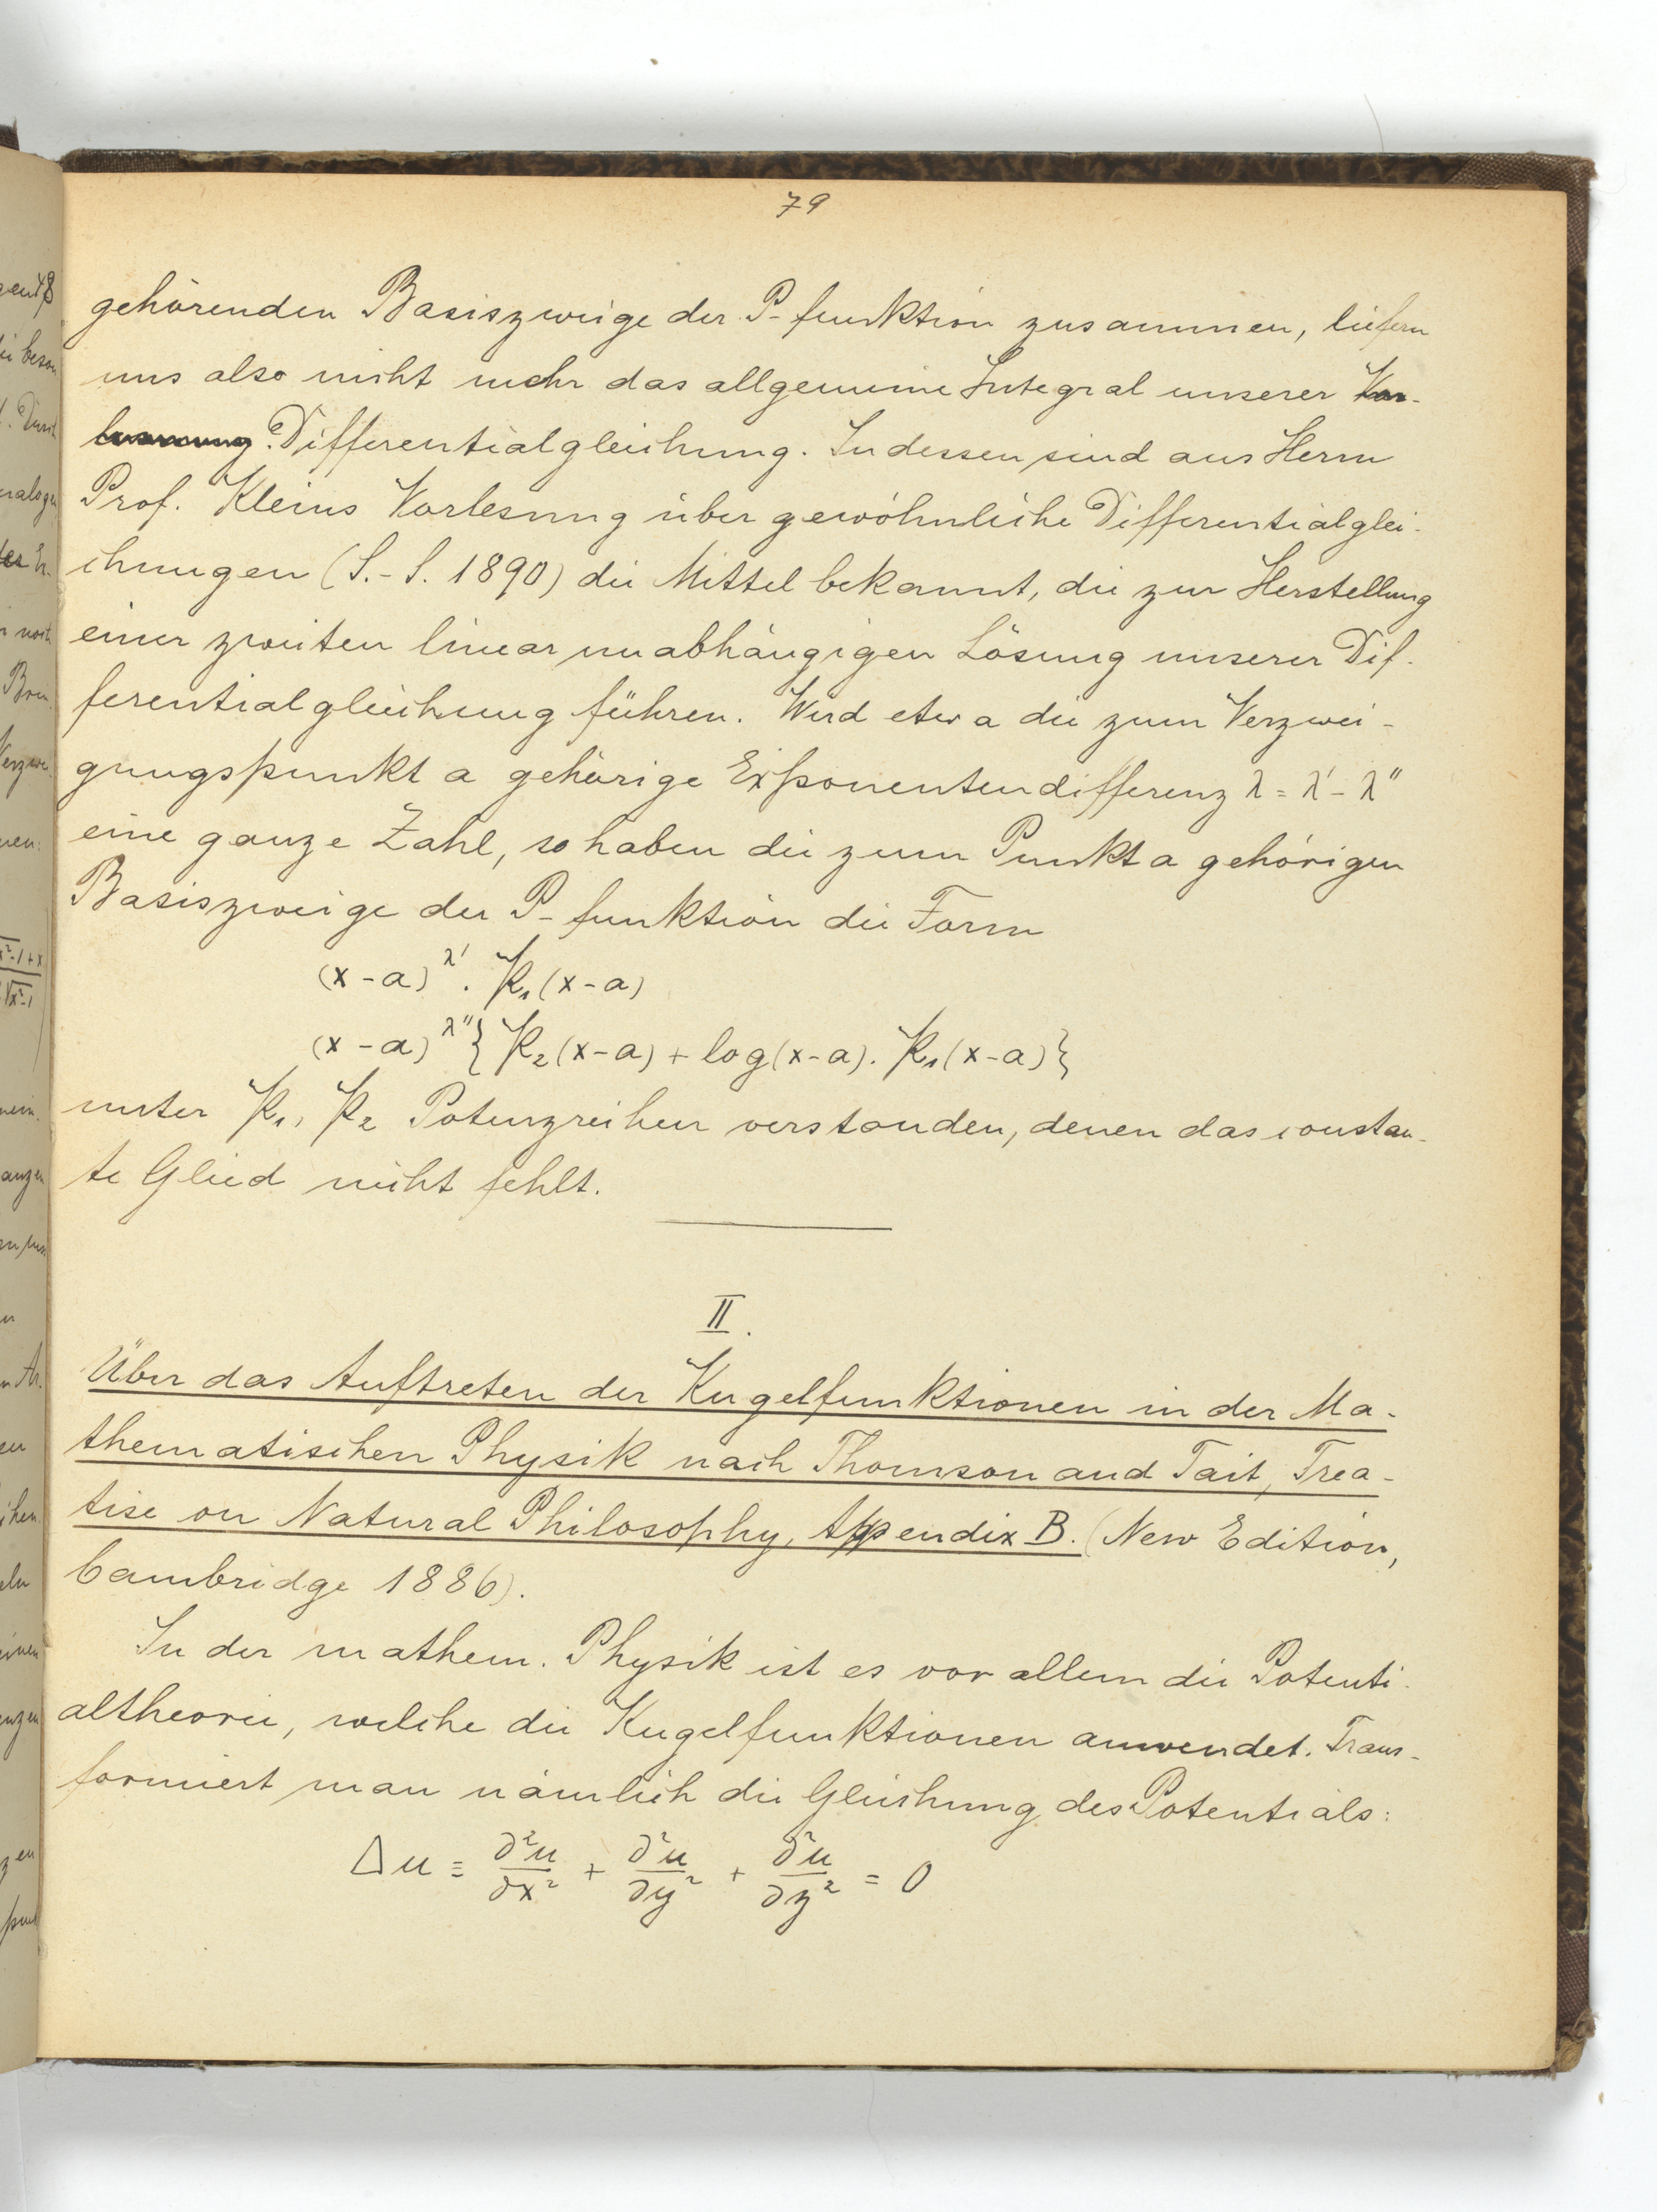 79
gehörenden Basiszweige der P-funktion zusammen, liefern
uns also nicht mehr das allgemeine Integral unserer
Differentialgleichung. Indessen sind aus Herrn
Prof. Kleins Vorlesung über gewöhnliche Differentialglei-
chungen (S.-S. 1890) die Mittel bekannt, die zur Herstellung
einer zweiten linear unabhängigen Lösung unserer Dif-
ferentialgleichung führen. Wird etwa die zum Verzwei-
gungspunkt a gehörige Exponentendifferenz λ = λ' - λ''
eine ganze Zahl, so haben die zum Punkt a gehörigen
Basiszweige der P-funktion die Form
(x-a)^λ' . 𝔓₁(x-a)
(x-a)^λ'' {𝔓₂(x-a) + log(x-a). 𝔓₁(x-a)}
unter 𝔓₁, 𝔓₂ Potenzreihen verstanden, denen das constan-
te Glied nicht fehlt.
II.
Über das Auftreten der Kugelfunktionen in der Ma-
thematischen Physik nach Thomson and Tait, Trea-
tise on Natural Philosophy, Appendix B. (New Edition,
Cambridge 1886).
In der mathem. Physik ist es vor allem die Potenti-
altheorie, welche die Kugelfunktionen anwendet. Trans-
formiert man nämlich die Gleichung des Potentials:
Δu = ∂²u/∂x² + ∂²u/∂y² + ∂²u/∂z² = 0